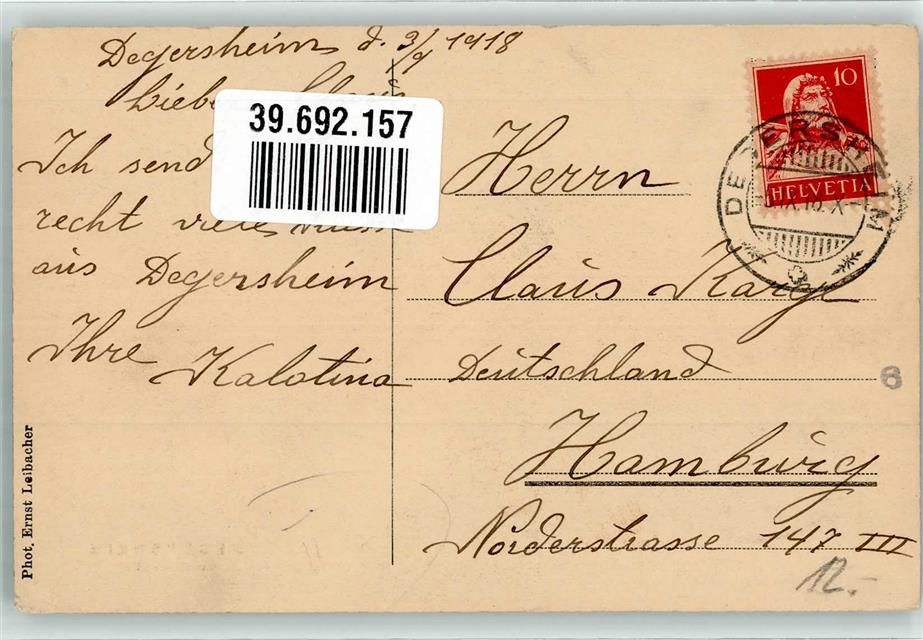 Degersheim d. 3/9 1918
Ich send
recht viele
aus Degersheim
Ihre
Kalotina
39.692.157
Herrn
Claus Karge
Deutschland
Hamburg
Norderstrasse 147 III
10
HELVETIA
DEGERSHEIM
Phot. Ernst Leibacher
6
12.-